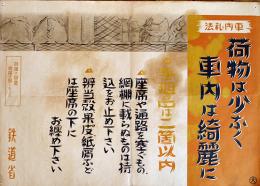 車内礼法
荷物は少なく
車内は綺麗に
は二箇以内
座席や通路を塞ぐもの
網棚に載らぬものは持
込をお止め下さい
辨当殻果皮紙屑など
は座席の下に
お纏め下さい
鉄道省